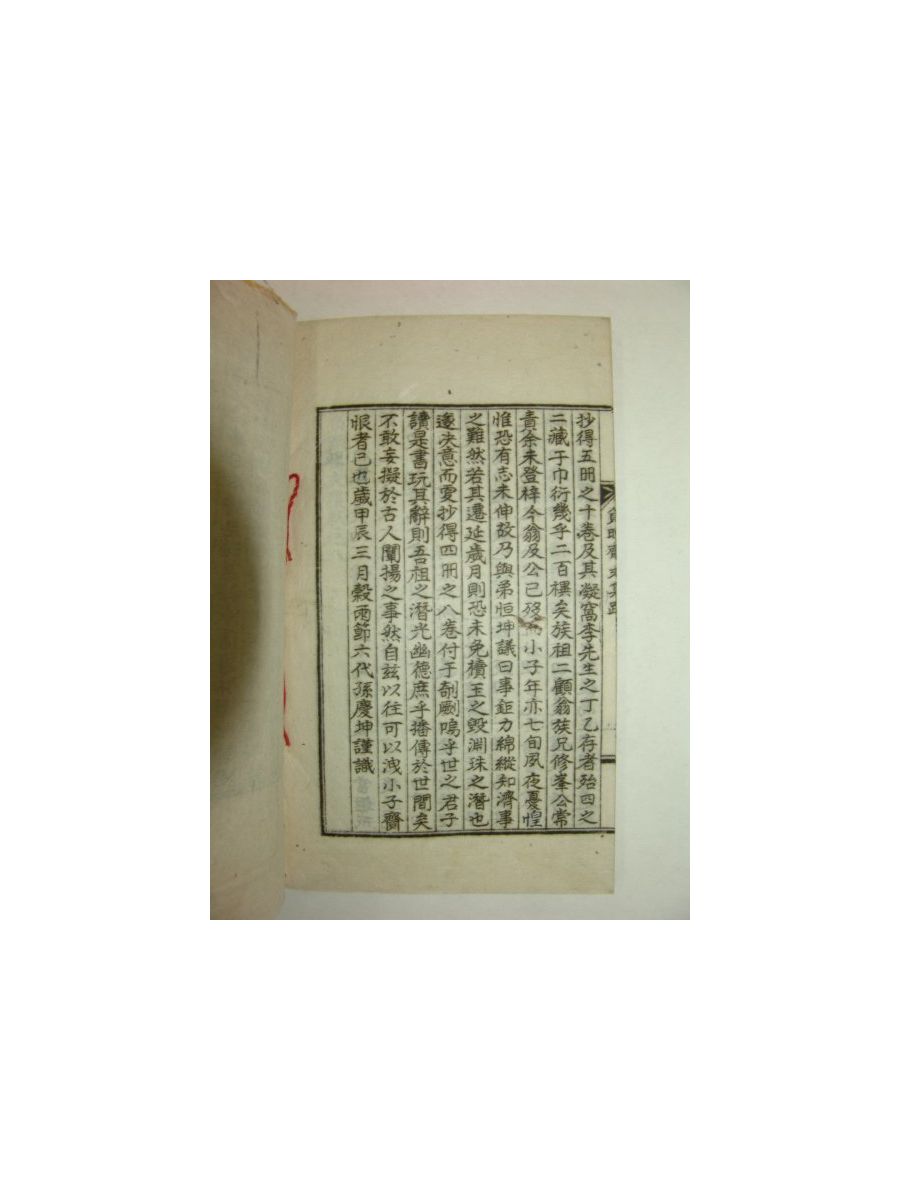 抄得五冊之十卷及其凝窩李先生之丁乙存者殆四之
二藏于巾衍幾乎二百禩矣族祖二顧翁族兄修峯公常
責余未登梓今翁及公已歿小子年亦七旬夙夜憂惶
惟恐有志未伸故乃與弟恒坤議曰事鉅力綿縱知濟事
之難然若其遷延歲月則恐未免櫝玉之毀淵珠之潛也
遂决意而更抄得四冊之八卷付于剞劂嗚乎世之君子
讀是書玩其辭則吾祖之潛光幽德庶乎播傳於世間矣
不敢妄擬於古人闡揚之事然自玆以往可以洩小子齎
恨者已也歲甲辰三月糓雨節六代孫慶坤謹識
齋文集跋